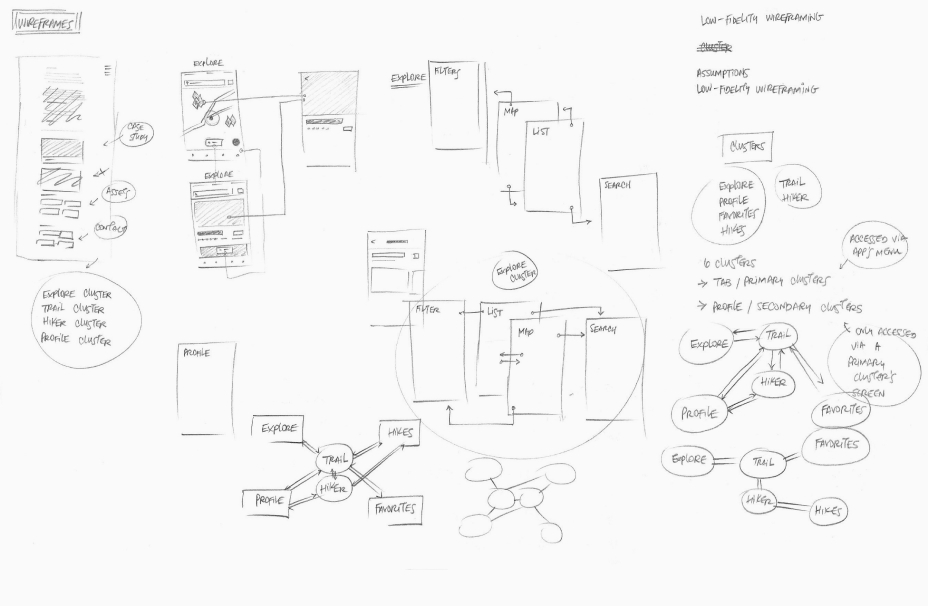 WIREFRAMES
CASE STUDY
ASSETS
CONTACT
EXPLORE CLUSTER
TRAIL CLUSTER
HIKER CLUSTER
PROFILE CLUSTER
EXPLORE
EXPLORE
EXPLORE
FILTERS
MAP
LIST
SEARCH
EXPLORE CLUSTER
FILTER
LIST
MAP
SEARCH
PROFILE
EXPLORE
HIKES
TRAIL
HIKER
PROFILE
FAVORITES
LOW-FIDELITY WIREFRAMING
CLUSTER
ASSUMPTIONS
LOW-FIDELITY WIREFRAMING
CLUSTERS
EXPLORE
PROFILE
FAVORITES
HIKES
TRAIL
HIKER
ACCESSED VIA
APP'S MENU
6 CLUSTERS
→ TAB / PRIMARY CLUSTERS
→ PROFILE / SECONDARY CLUSTERS
ONLY ACCESSED
VIA A
PRIMARY
CLUSTER'S
SCREEN
EXPLORE
TRAIL
HIKER
PROFILE
FAVORITES
EXPLORE
TRAIL
FAVORITES
HIKER
HIKES